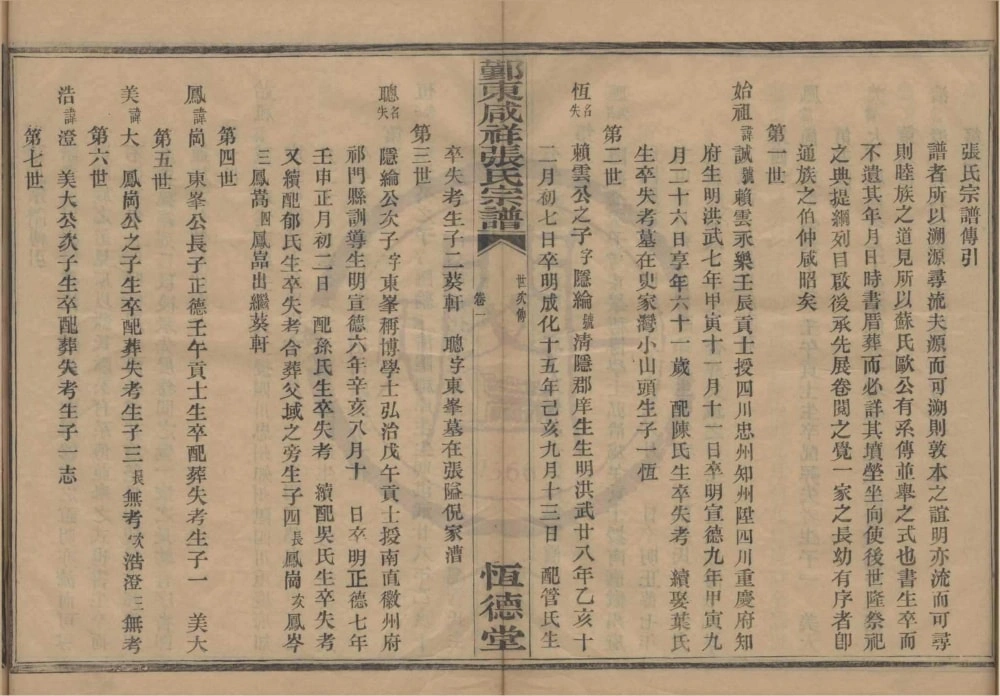 張氏宗譜傳引
譜者所以溯源尋流夫源而可溯則敦本之誼明亦流而可尋
則睦族之道見所以蘇氏歐公有系傳並舉之式也書生卒而
不遺其年月日時書厝葬而必詳其墳塋坐向使後世隆祭祀
之典提綱列目啟後承先展卷閱之覺一家之長幼有序者卽
通族之伯仲咸昭矣
第一世
始祖諱誠號賴雲永樂壬辰貢士授四川忠州知州陞四川重慶府知
府生明洪武七年甲寅十一月十一日卒明宣德九年甲寅九
月二十六日享年六十一歲 配陳氏生卒失考 續娶葉氏
生卒失考墓在史家灣小山頭生子一恆
第二世
恆名失 賴雲公之子字隱綸號清隱郡庠生生明洪武廿八年乙亥十
二月初七日卒明成化十五年己亥九月十三日 配管氏生
鄞東咸祥張氏宗譜 卷一 世次傳 恆德堂
卒失考生子二葵軒 聰字東峯墓在張隘倪家漕
第三世
聰名失 隱綸公次子字東峯稱博學士弘治戊午貢士授南直徽州府
祁門縣訓導生明宣德六年辛亥八月十 日卒明正德七年
壬申正月初二日 配孫氏生卒失考 續配吳氏生卒失考
又續配郁氏生卒失考合葬父域之旁生子四長鳳崗次鳳岑
三鳳嵩四鳳嵓出繼葵軒
第四世
鳳諱崗 東峯公長子正德壬午貢士生卒配葬失考生子一 美大
第五世
美諱大 鳳崗公之子生卒配葬失考生子三長無考次浩澄三無考
第六世
浩諱澄 美大公次子生卒配葬失考生子一志
第七世